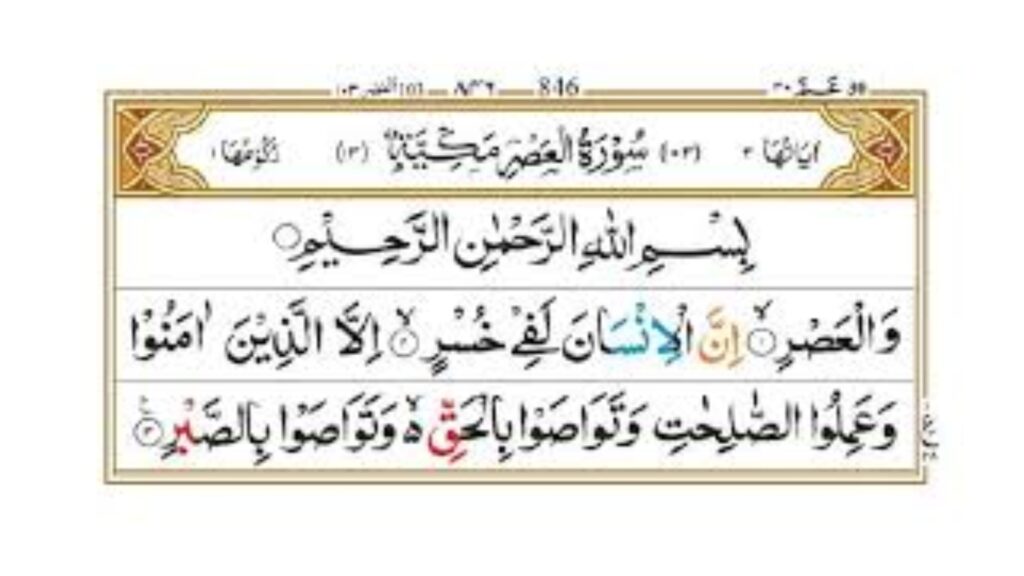 عـمّ ۳۰ 846 ۸۴۶ العصر ۱۰۳
اٰيَاتُهَا ۳ (۱۰۳) سُوْرَةُ الْعَصْرِ مَكِّيَّةٌ (۱۳) رُكُوْعُهَا ۱
بِسْمِ اللهِ الرَّحْمٰنِ الرَّحِيْمِ
وَالْعَصْرِ ۙ﴿۱﴾ اِنَّ الْاِنْسَانَ لَفِيْ خُسْرٍ ۙ﴿۲﴾ اِلَّا الَّذِيْنَ اٰمَنُوْا
وَعَمِلُوا الصّٰلِحٰتِ وَتَوَاصَوْا بِالْحَقِّ ۙ۬ وَتَوَاصَوْا بِالصَّبْرِ ﴿۳﴾